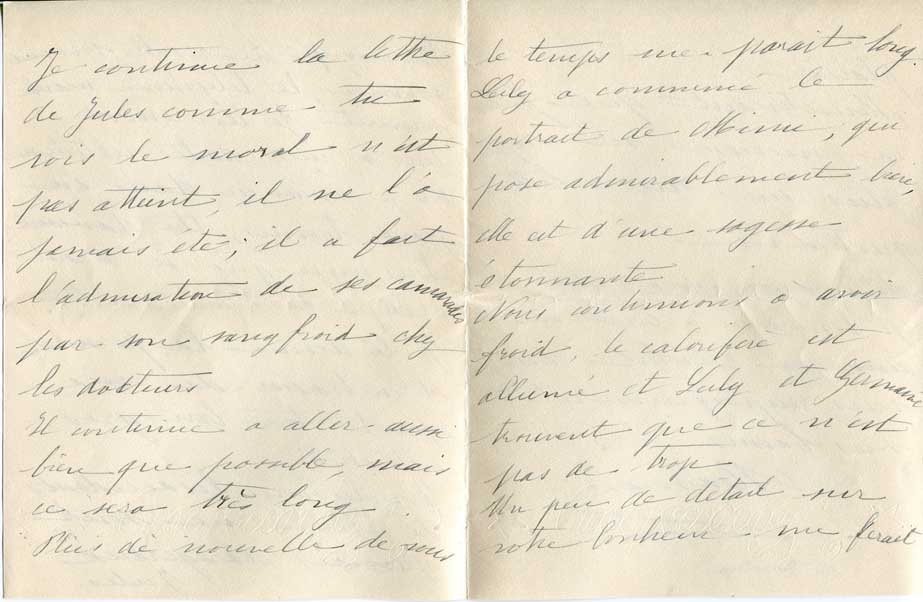 Je continue la lettre
de Jules comme tu
vois le moral n'est
pas atteint, il ne l'a
jamais été; il a fait
l'admiration de ses camarades
par son sang froid chez
les docteurs
Il continue a aller aussi
bien que possible, mais
ce sera très long.
Plus de nouvelle de vous
le temps me parait long.
Luly a commencé le
portrait de Mimi, qui
pose admirablement bien,
elle est d'une sagesse
étonnante
Nous continuons a avoir
froid, le calorifère est
allumé et Luly et Germaine
trouvent que ce n'est
pas de trop
Un peu de detail sur
votre bonheur me ferait